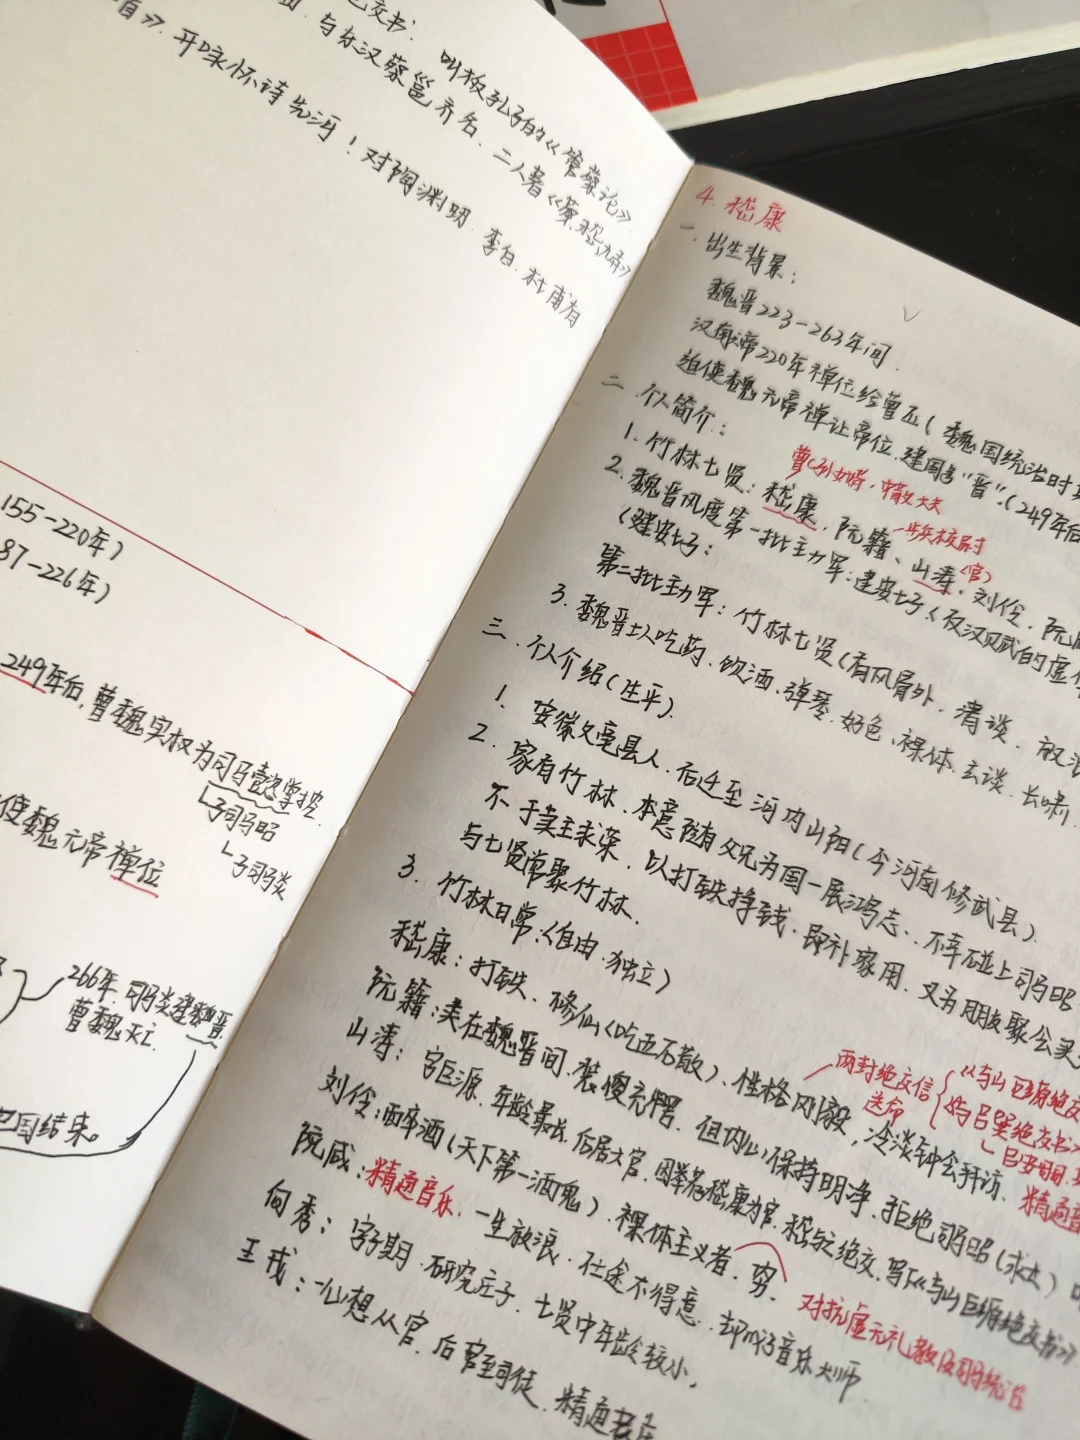 绝交书:叫板孔子的《管蔡论》
与东汉蔡邕齐名,二人著《蔡
首》.开咏怀诗先河!对陶渊明.李白.杜甫有
155-220年)
87-226年)
249年后,曹魏实权为司马懿掌控.
子司马昭
子司马炎
使魏元帝禅位
266年.司马炎建
曹魏灭亡.
国结束。
4.嵇康
一.出生背景:
魏晋223-263年间.
汉献帝220年禅位给曹丕(魏国统治时
迫使魏元帝禅让帝位.建国号“晋”.(249年后
二.个人简介:
曹 孙女婿.中散大夫
1.竹林七贤:嵇康.阮籍、山涛.刘伶.阮
步兵校尉
(官)
2.魏晋风度第一批主力军:建安七子(反汉
(建安七子:
第二批主力军:竹林七贤(有风骨外.清谈.放浪
3.魏晋士人吃药、饮酒、弹琴.好色.裸体.玄谈.长啸
三.个人介绍(生平).
1.安徽 亳县人.后迁至河内山阳(今河南修武县).
2.家有竹林.本意 有 为国一展鸿志.不幸碰上司马昭
不 于卖主求荣.以打铁挣钱.即补家用.又为朋友聚
与七贤常聚竹林.
3.竹林日常:(自由.独立)
嵇康:打铁、修仙(吃五石散)、性格刚毅,冷淡钟会拜访、精通
两封绝交信
送命
《与山巨源绝交
《与吕巽绝交书》
阮籍:卖在魏晋间.装傻充 .但内心保持明净.拒绝司马昭(求 )
山涛:字巨源.年龄最长.后居大官.因举荐嵇康为官.嵇与之绝交.写下《与山巨源绝交书》
刘伶: 酒(天下第一酒鬼).裸体主义者.穷.
对抗虚无礼教及司马统治
阮咸:精通音乐.一生放浪.仕途不得意.却成为音乐大师.
向秀:字子期.研究庄子.七贤中年龄较小.
王戎:一心想从官.后官至司徒.精通